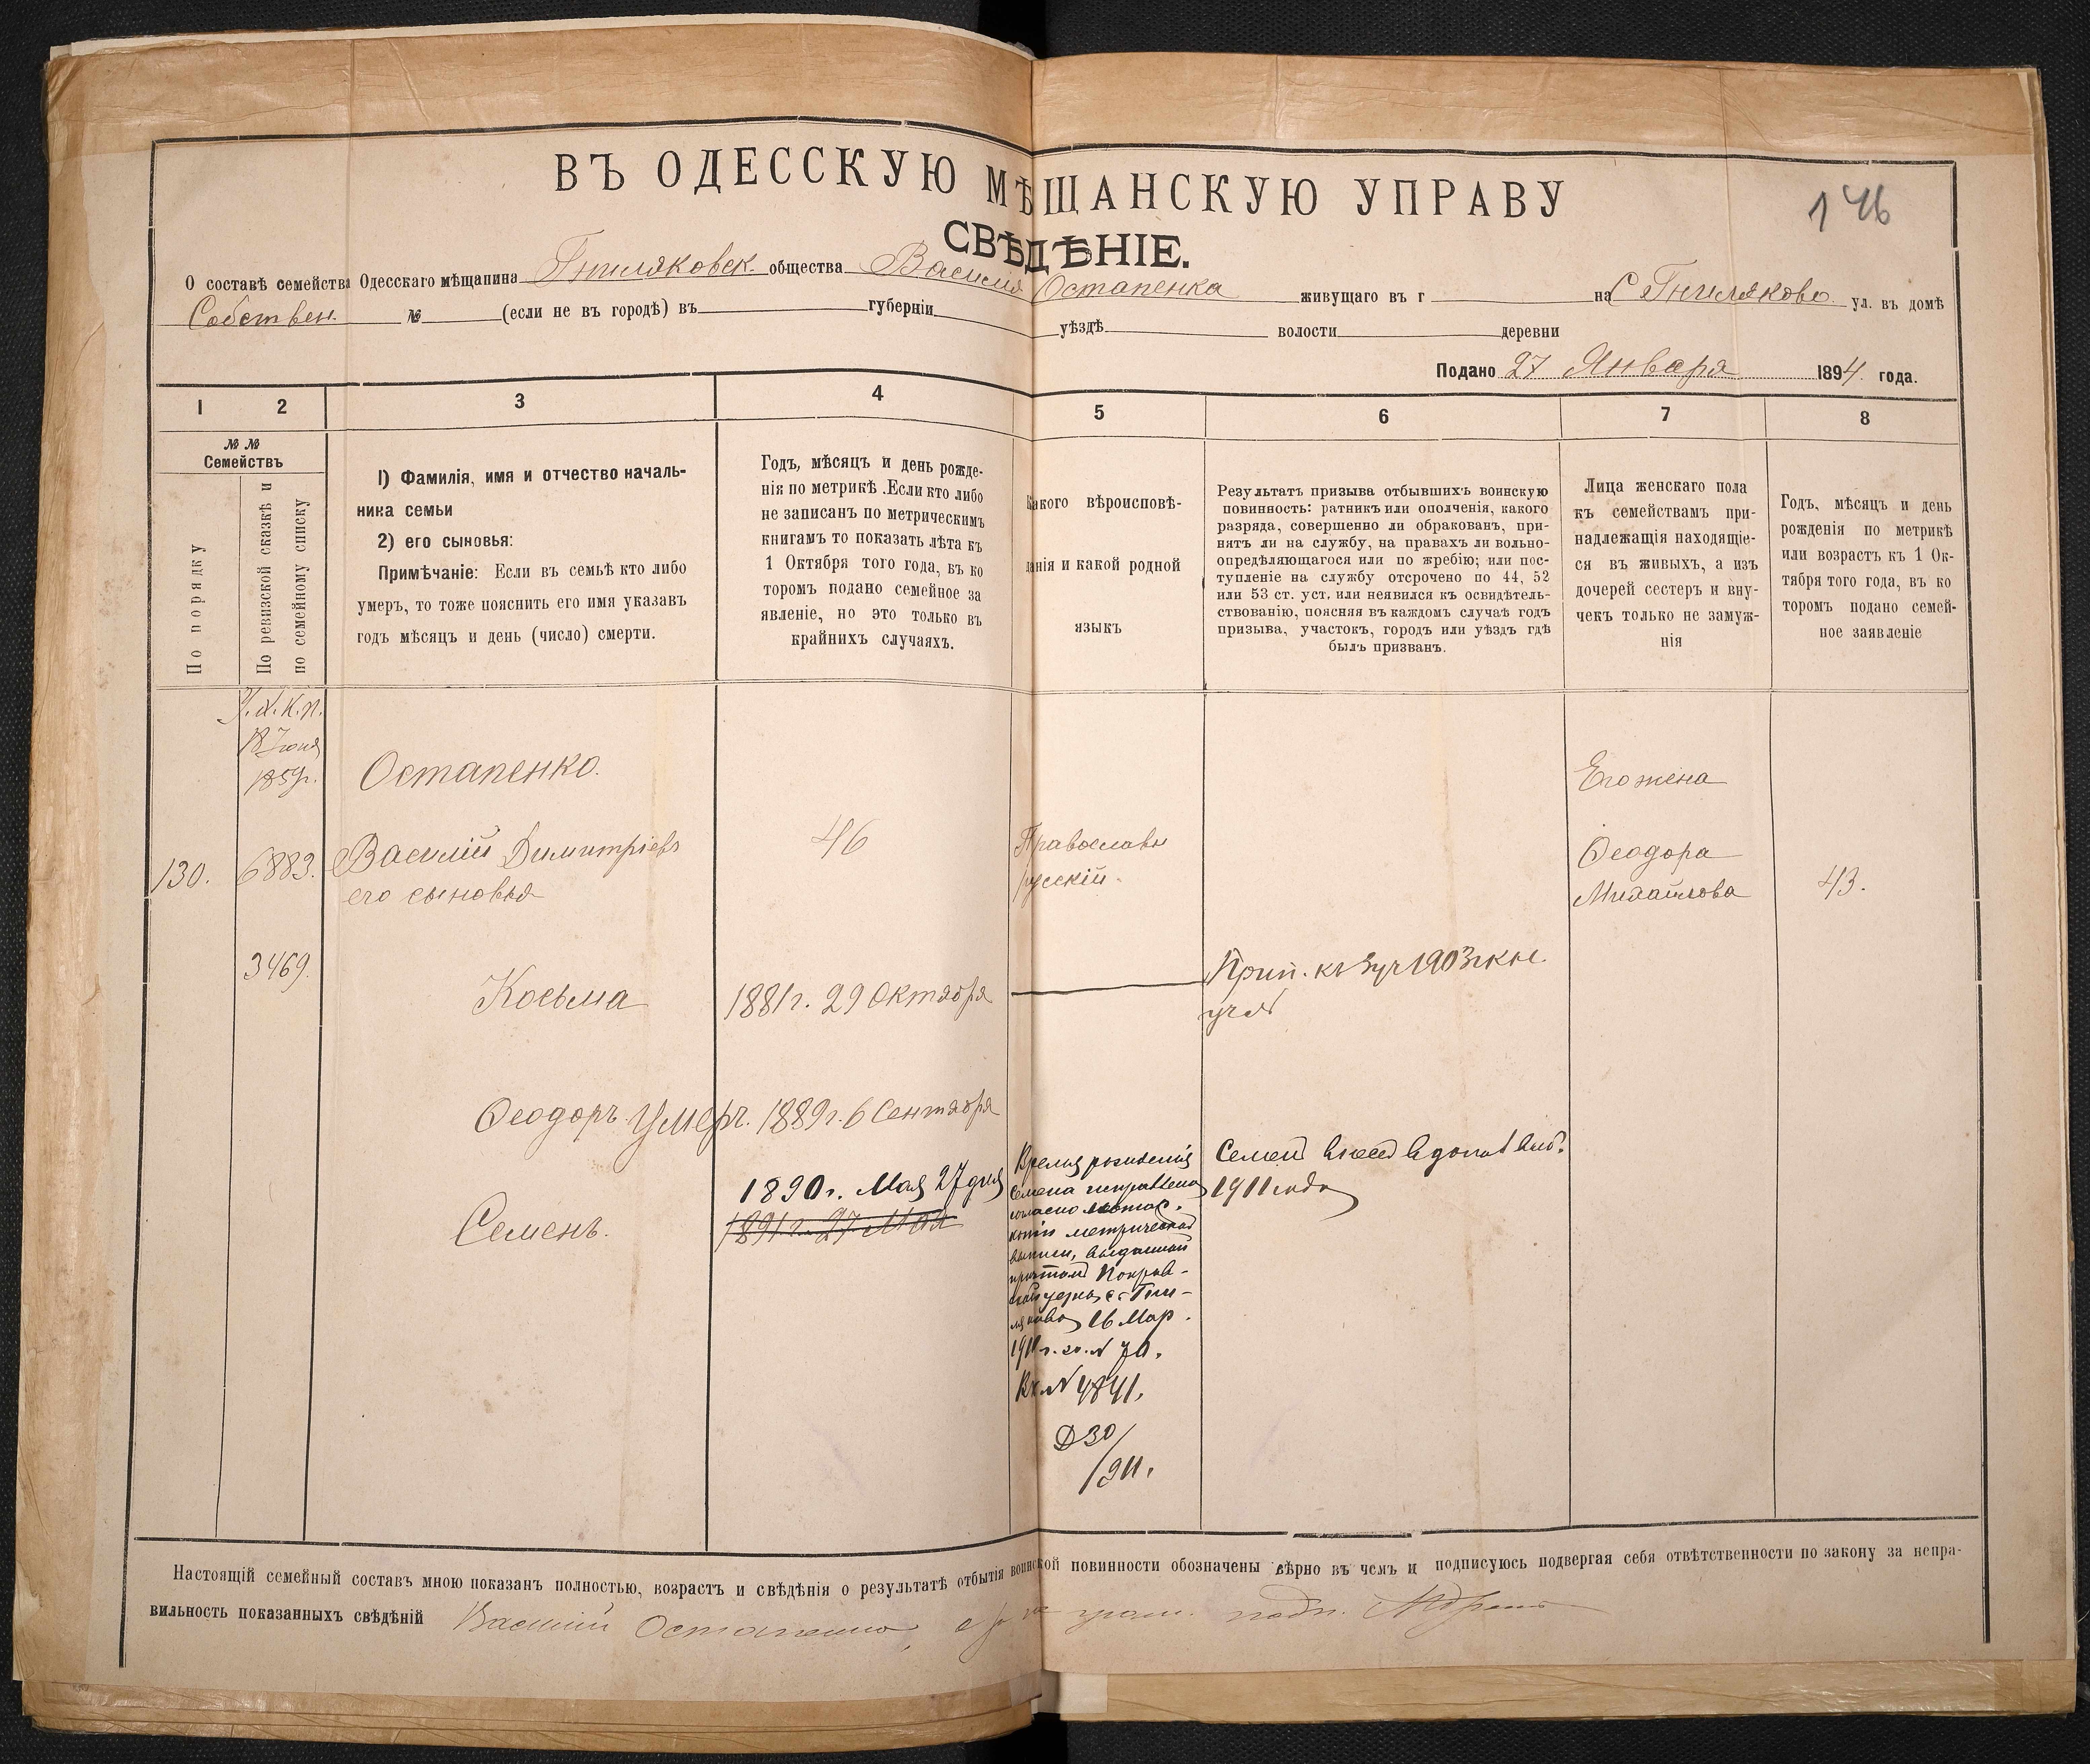 ВЪ ОДЕССКУЮ МѢЩАНСКУЮ УПРАВУ
146
СВѢДѢНІЕ.
О составѣ семейства Одесскаго мѣщанина Гниляковск. общества Василія Остапенка живущаго въ г на С Гниляково ул. въ домѣ
Собствен. № (если не въ городѣ) въ губерніи уѣздѣ волости деревни
Подано 27 Января 1894 года.
1 2 3 4 5 6 7 8
№ №
Семействъ
По порядку
По ревизской сказкѣ и
по семейному списку
1) Фамилія, имя и отчество началь-
ника семьи
2) его сыновья:
Примѣчаніе: Если въ семьѣ кто либо
умеръ, то тоже пояснить его имя указавъ
годъ мѣсяцъ и день (число) смерти.
Годъ, мѣсяцъ и день рожде-
нія по метрикѣ .Если кто либо
не записанъ по метрическимъ
книгамъ то показать лѣта къ
1 Октября того года, въ ко
торомъ подано семейное за
явленіе, но это только въ
крайнихъ случаяхъ.
Какого вѣроисповѣ-
данія и какой родной
языкъ
Результатъ призыва отбывшихъ воинскую
повинность: ратникъ или ополченія, какого
разряда, совершенно ли обракованъ, при-
нятъ ли на службу, на правахъ ли вольно-
опредѣляющагося или по жребію; или пос-
тупленіе на службу отсрочено по 44, 52
или 53 ст. уст. или неявился къ освидѣтель-
ствованію, поясняя въ каждомъ случаѣ годъ
призыва, участокъ, городъ или уѣздъ гдѣ
былъ призванъ.
Лица женскаго пола
къ семействамъ при-
надлежащія находящіе-
ся въ живыхъ, а изъ
дочерей сестеръ и вну-
чекъ только не замуж-
нія
Годъ, мѣсяцъ и день
рожденія по метрикѣ
или возрастъ къ 1 Ок-
тября того года, въ ко
торомъ подано семей-
ное заявленіе
18 Іюня
1859г.
Остапенко.
Его жена
130. 6883. Василій Димитріевъ 46 Православн Ѳеодора
его сыновья русскій. Михайлова 43.
3469.
Прип. къ 1903
Косьма 1881 г. 29 Октября
Ѳеодоръ Умеръ. 1889 г. 6 Сентября
Время рожденія
1890 г. Мая 27 дня Семена исправлено 1911 года
Семенъ. 1891 г. 27 Мая
согласно
копіи метрической
выписи, выданной
причтомъ Покров-
ской церкви с. Гни-
ляково 16 Мар.
1911 г. за № 70.
Вх. № 4841.
Д 30/911.
Настоящій семейный составъ мною показанъ полностью, возрастъ и свѣдѣнія о результатѣ отбытія воинской повинности обозначены вѣрно въ чемъ и подписуюсь подвергая себя отвѣтственности по закону за непра-
вильность показанныхъ свѣдѣній Василій Остапенко,